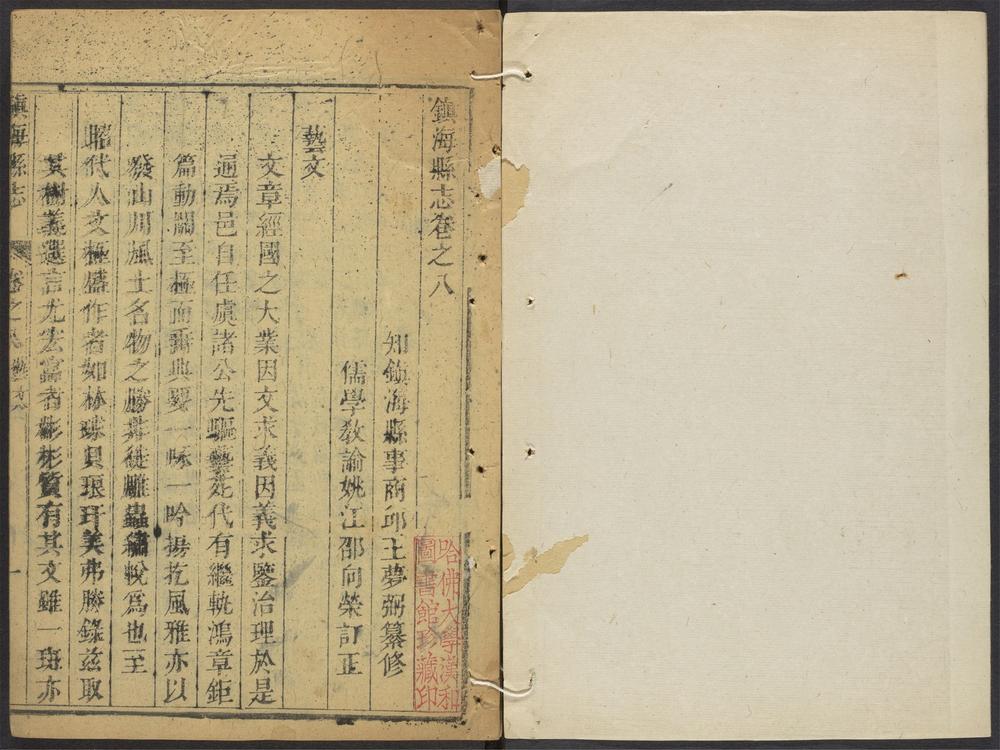 鎮海縣志卷之八
知鎮海縣事商邱王夢弼纂修
儒學敎諭姚江邵向榮訂正
藝文
文章經國之大業因文求義因義求鑒治理於是
逎焉邑自任虞諸公先驅藝苑代有繼軌鴻章鉅
篇動關至極而爾典要一咏一吟揚扢風雅亦以
發山川風土名物之勝非徒雕蟲繡帨爲也至
昭代人文極盛作者如林球貝琅玕美弗勝錄兹取
其樹義選言尤宏富者彬彬質有其文雖一斑亦
鎮海縣志
卷之八
藝文
一
哈佛大學漢和
圖書館珍藏印